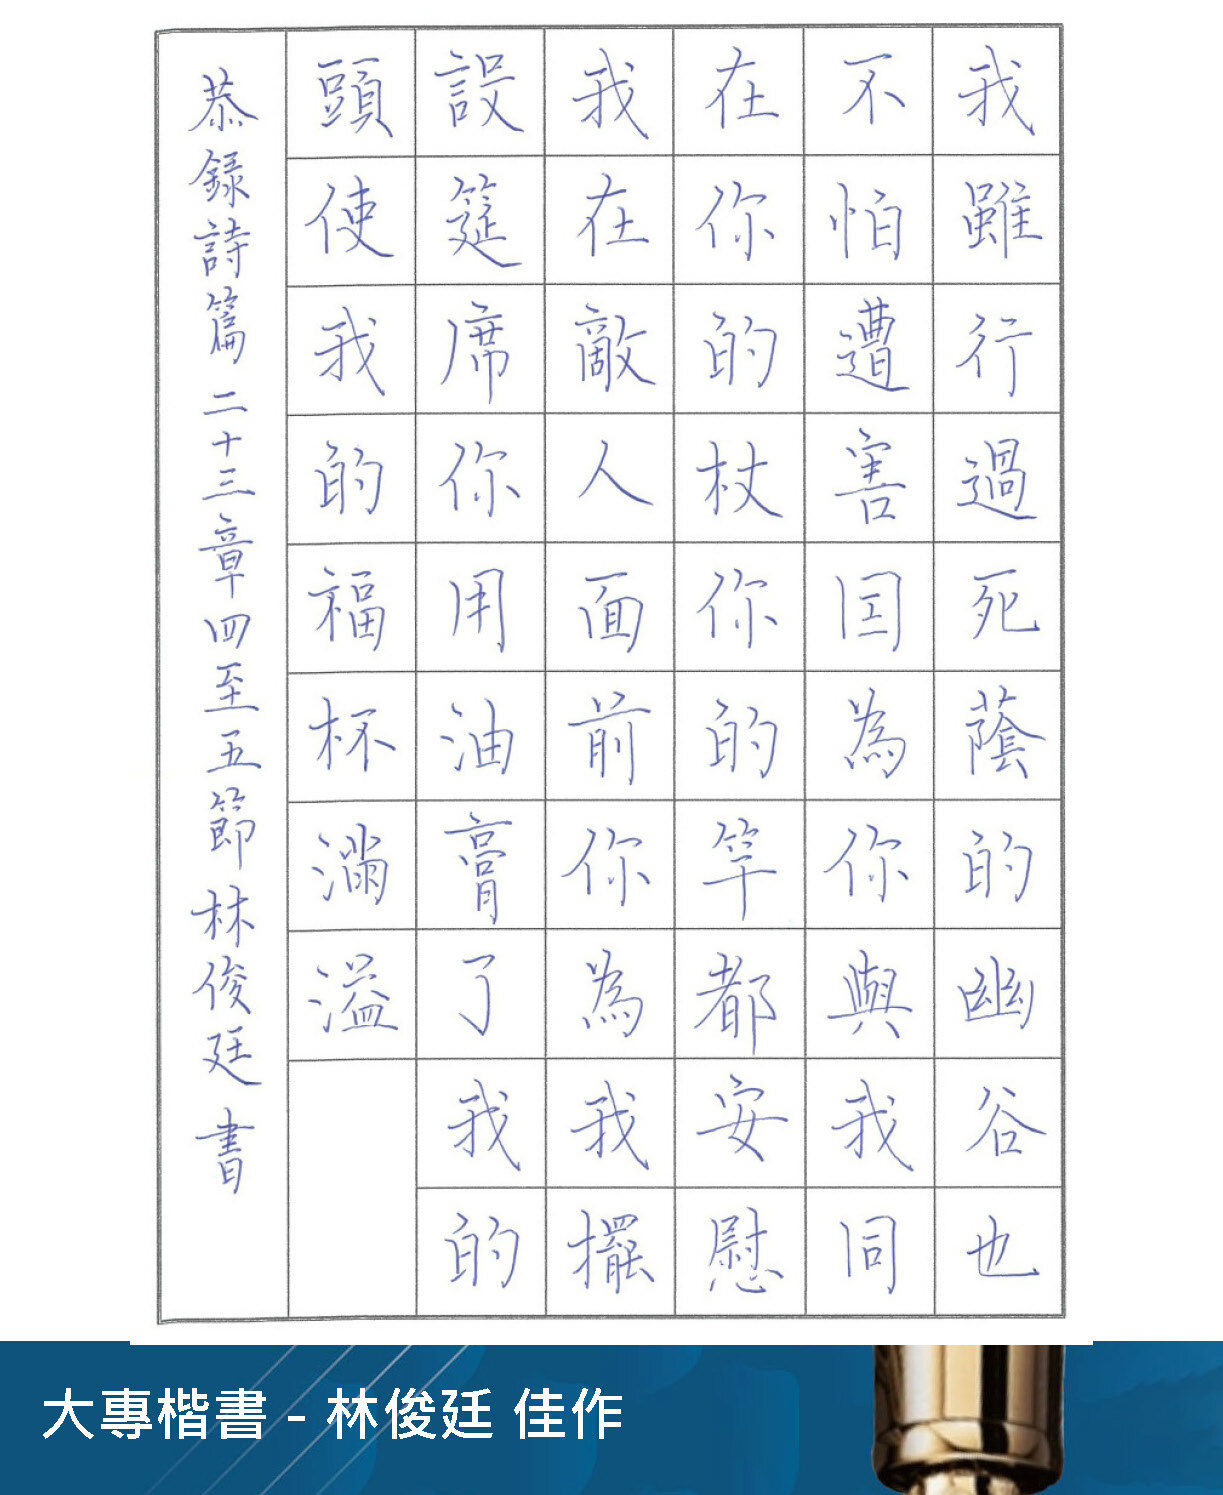 我雖行過死蔭的幽谷也
不怕遭害因為你與我同
在你的杖你的竿都安慰
我在敵人面前你為我擺
設筵席你用油膏了我的
頭使我的福杯滿溢
恭錄詩篇二十三章四至五節林俊廷書
大專楷書 - 林俊廷 佳作